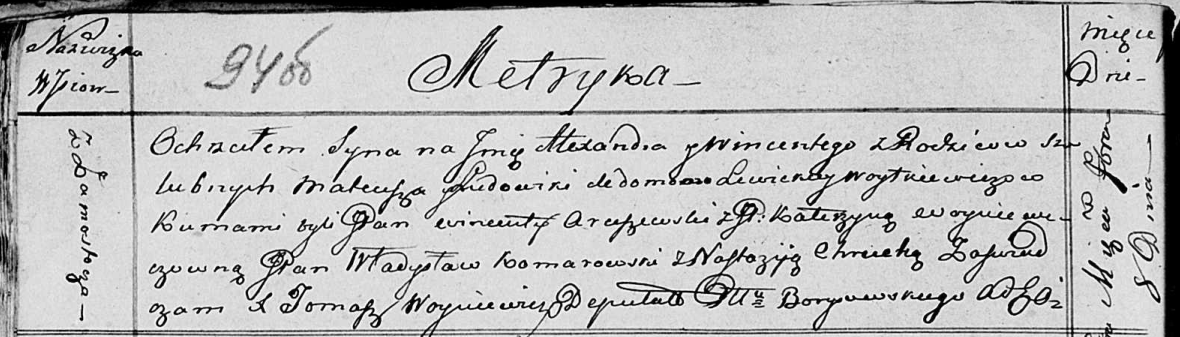 Nazwizka
Wsiow—
94об
Metryka—
miącu
Dnie—
z Zamosłza—
Ochrzciłem Syna na Jmię Alexandra y Wincentego z Rodziców Sz=
lubnych Mateusza y Ludowiki de domo Lewickiey Woytkiewiczow
Kumami byli Pan Wincenty Araszewski z P: Katerzyną Woyniewi=
czowną Pan Władysław Komarowski z Nastazyią Chrucką Zaświad
czam X Tomasz Woyniewicz Deputatt Borysowskiego
8 Dnia—